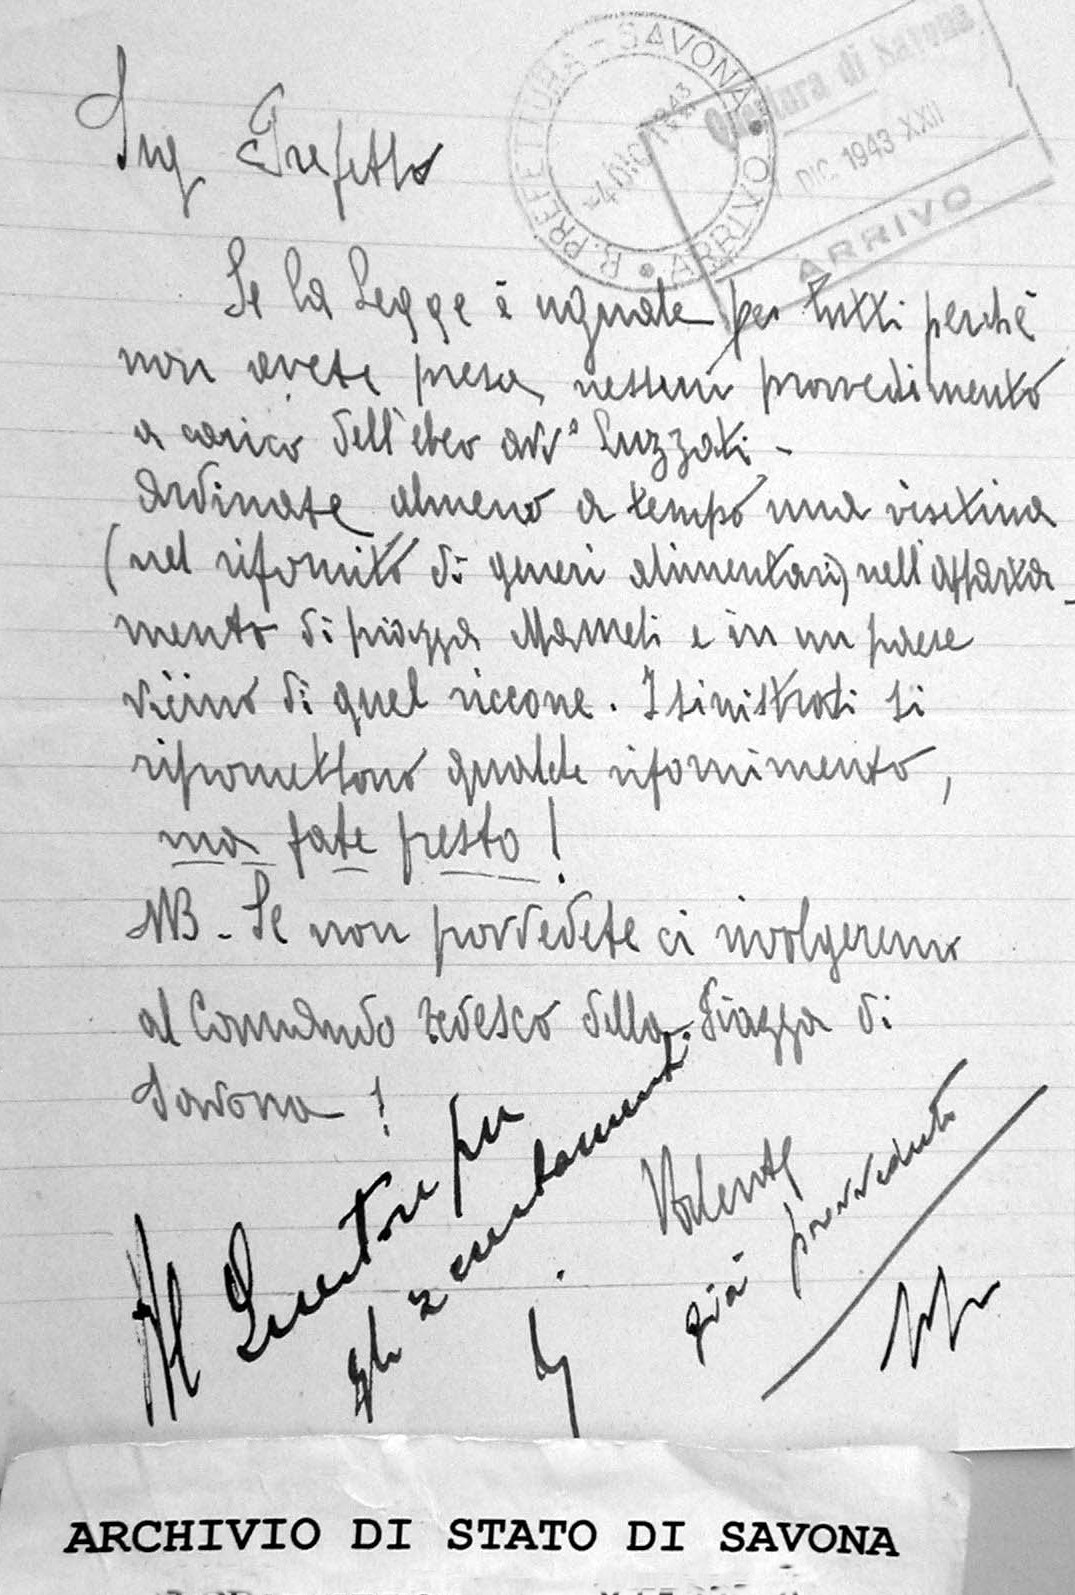 R. PREFETTURA - SAVONA • ARRIVO •
-4 DIC. 1943
Questura di Savona
DIC. 1943 XXII
ARRIVO
Sig Prefetto
Se la Legge è uguale per tutti perché
non avete preso nessun provvedimento
a carico dell'ebreo avvº Luzzati -
Ordinate almeno a tempo una visitina
(nel rifornito di generi alimentari) nell'apparta-
mento di piazza Mameli e in un paese
vicino di quel riccone. I sinistrati si
ripromettono qualche rifornimento,
ma fate presto!
NB - Se non provvedete ci rivolgeremo
al Comando tedesco della Piazza di
Savona !
Al Questore per
gli accertamenti
Valente
già provveduto
ARCHIVIO DI STATO DI SAVONA